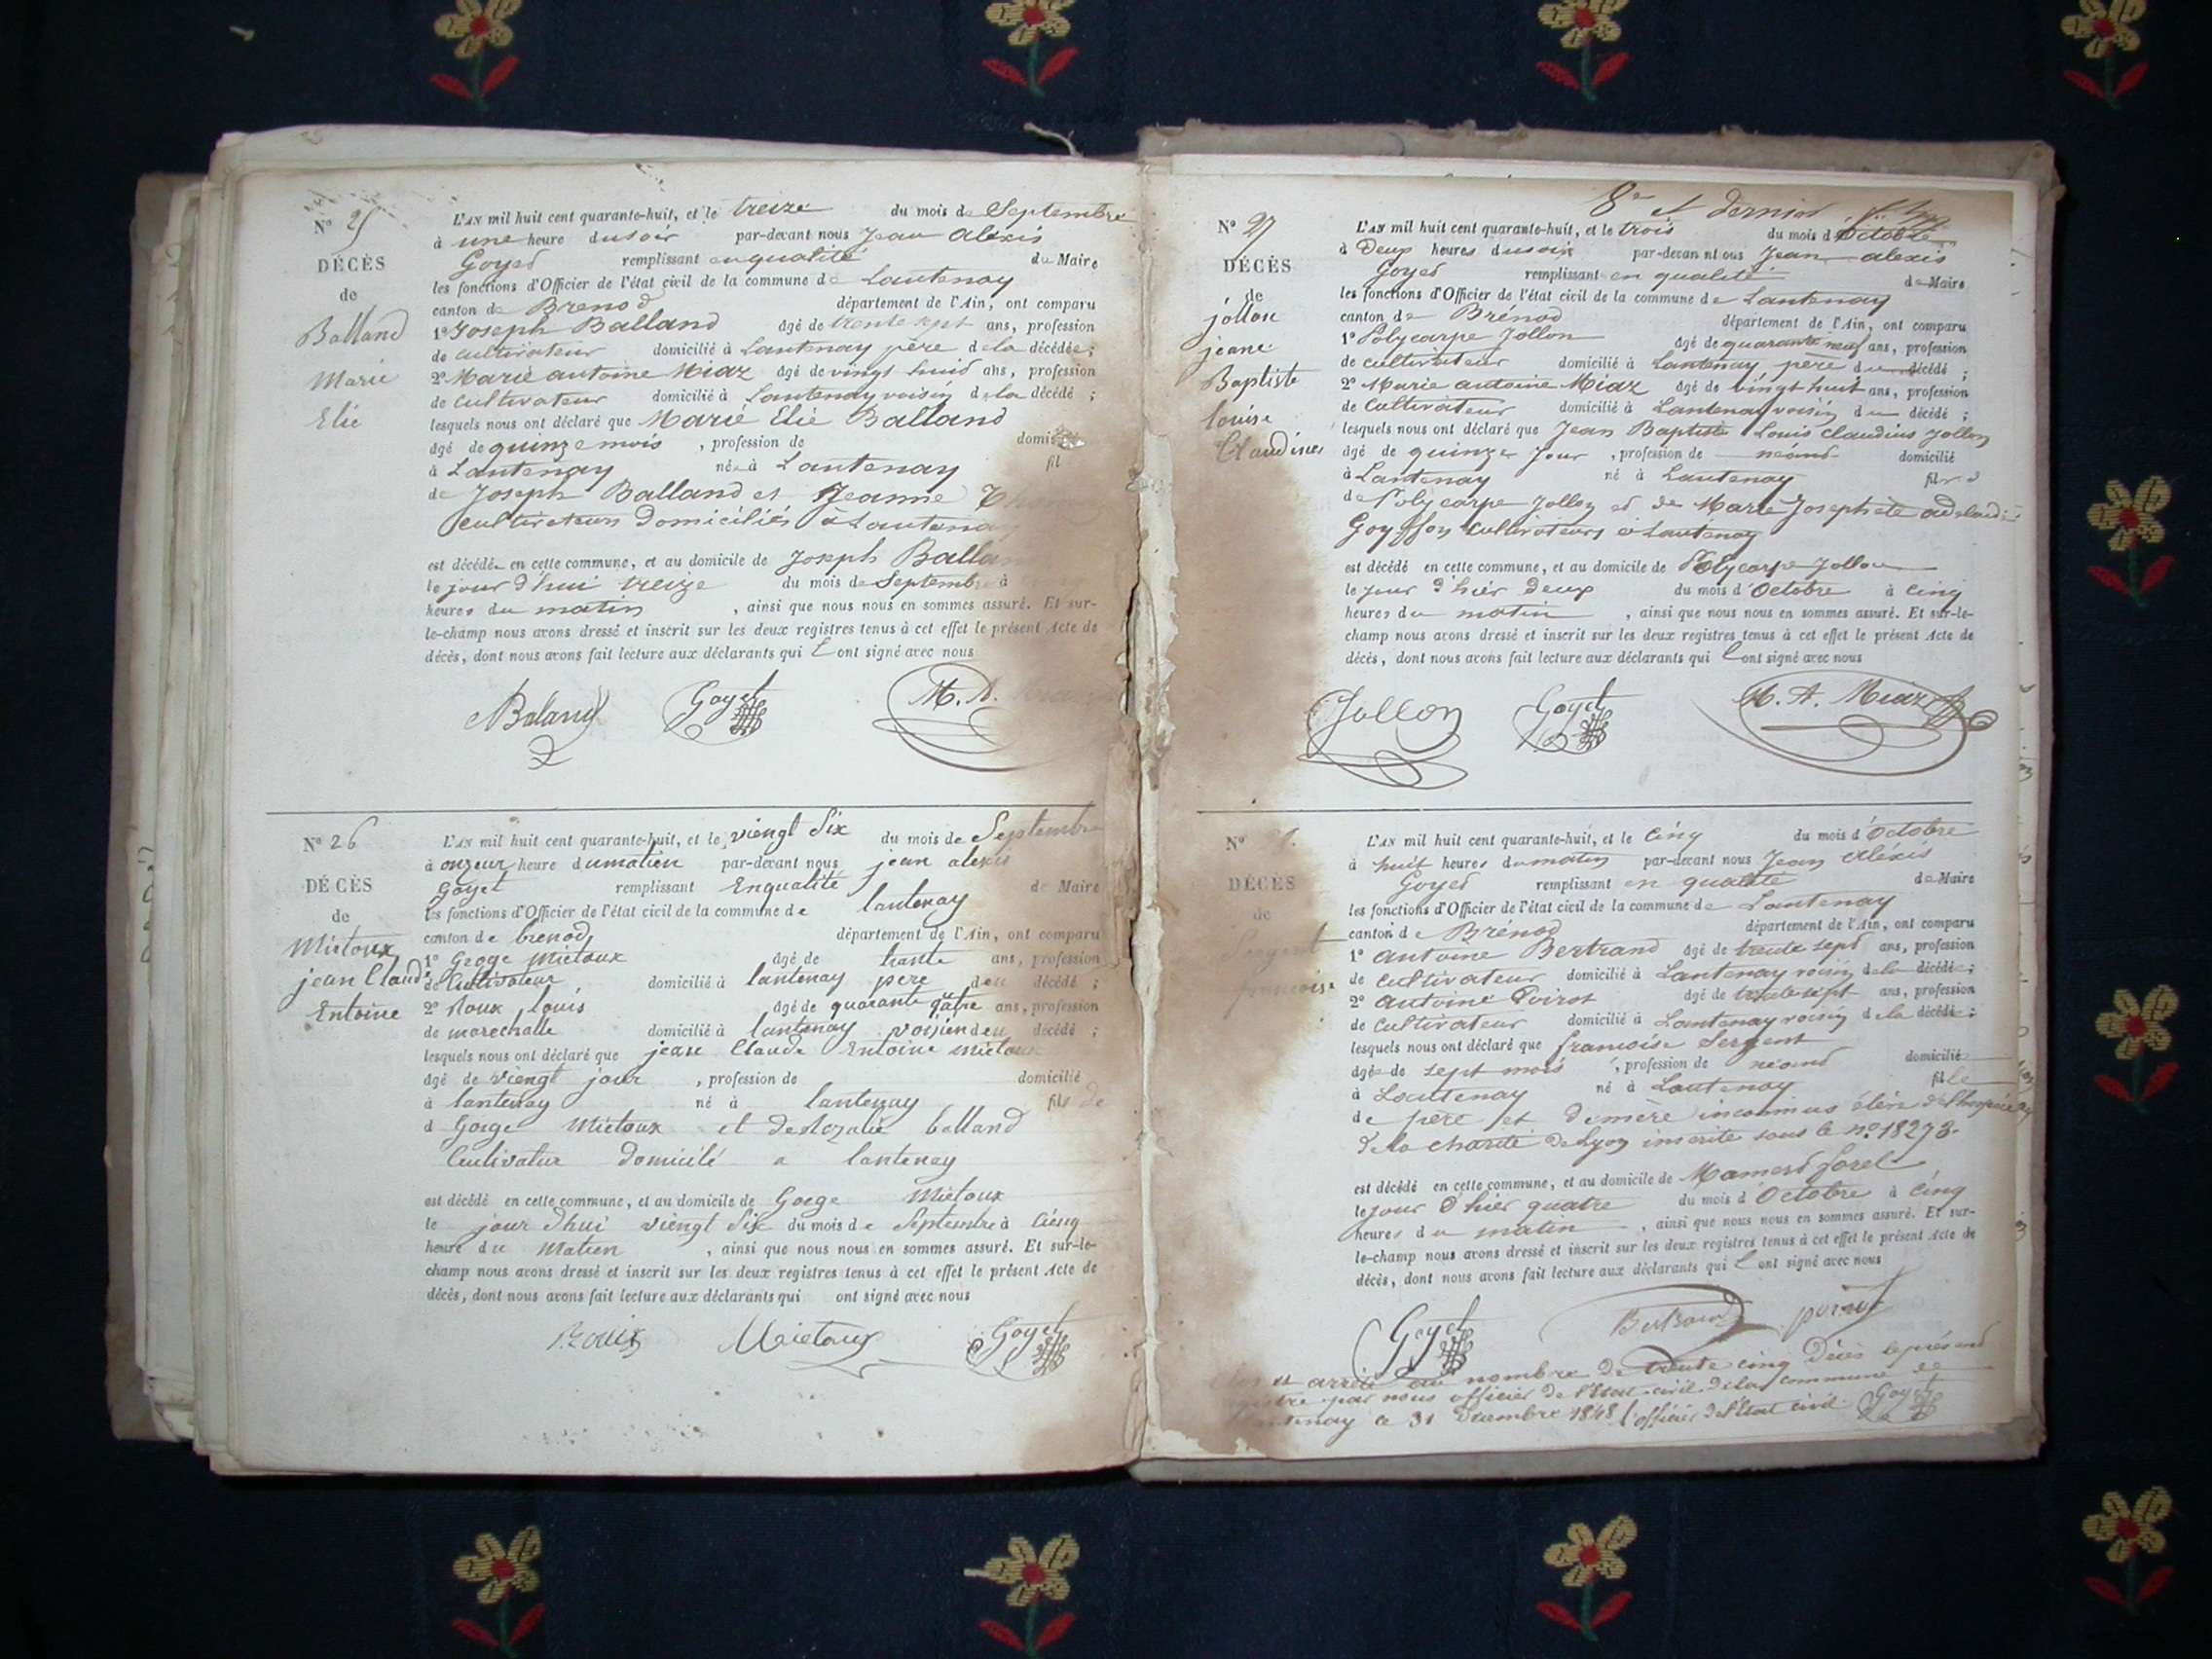 N° 25
DÉCÈS
de
Balland
Marie
Elie
L'AN mil huit cent quarante-huit, et le treize du mois de Septembre
à une heure du soir par-devant nous Jean alexis
Goyet remplissant en qualité de Maire
les fonctions d'Officier de l'état civil de la commune de Lantenay
canton de Brenod département de l'Ain, ont comparu
1° Joseph Balland âgé de trente sept ans, profession
de cultivateur domicilié à Lantenay père de la décédée;
2° Marie antoine Miaz âgé de vingt huit ans, profession
de Cultivateur domicilié à Lantenay voisin de la décédé;
lesquels nous ont déclaré que Marie Elie Balland
âgé de quinze mois, profession de
à Lantenay née à Lantenay fil
de Joseph Balland et Jeanne
Cultivateurs Domiciliés à Lantenay
est décédée en cette commune, et au domicile de Joseph Balland
le jour d'hui treize du mois de Septembre à
heures du matin, ainsi que nous nous en sommes assuré. Et sur-
le-champ nous avons dressé et inscrit sur les deux registres tenus à cet effet le présent Acte de
décès, dont nous avons fait lecture aux déclarants qui ont signé avec nous
Baland Goyet M. A.
N° 26
DÉCÈS
de
Miétoux
jean Claud
Entoine
L'AN mil huit cent quarante-huit, et le viengt Six du mois de Septembre
à onzeur heure dumatien par-devant nous jean alexis
Goyet remplissant Enqualité de Maire
les fonctions d'Officier de l'état civil de la commune de lantenay
canton de brenod département de l'Ain, ont comparu
1° Groge Miétoux âgé de trante ans, profession
de Cultivateur domicilié à lantenay pere deu décédé;
2° Roux louis âgé de quarante quatre ans, profession
de marechalle domicilié à lantenay vossien deu décédé;
lesquels nous ont déclaré que jean Claude Entoine miétoux
âgé de viengt jour, profession de domicilié
à lantenay né à lantenay fils de
d Goege Miétoux et de Rozalie balland
Cultivatur domicilé a lantenay
est décédé en cette commune, et au domicile de Goege Miétoux
le jour d'hui viengt Six du mois de Septembre à Cienq
heure du Matien, ainsi que nous nous en sommes assuré. Et sur-le-
champ nous avons dressé et inscrit sur les deux registres tenus à cet effet le présent Acte de
décès, dont nous avons fait lecture aux déclarants qui ont signé avec nous
Roux Mietoux Goyet
8e et dernier
N° 27
DÉCÈS
de
jollon
jeane
Baptiste
louise
Claudines
L'AN mil huit cent quarante-huit, et le trois du mois d'Octobre
à Deux heures du soir par-devant nous Jean alexis
Goyet remplissant en qualité de Maire
les fonctions d'Officier de l'état civil de la commune de Lantenay
canton de Brénod département de l'Ain, ont comparu
1° Polycarpe Jollon âgé de quarante neuf ans, profession
de cultivateur domicilié à Lantenay père du décédé;
2° Marie antoine Miaz âgé de vingt huit ans, profession
de Cultivateur domicilié à Lantenay voisin du décédé;
lesquels nous ont déclaré que Jean Baptiste Louis Claudius Jollon
âgé de quinze Jour, profession de néant domicilié
à Lantenay né à Lantenay fils
de Polycarpe Jollon et de Marie Josephete
Goyffon Cultivateurs à Lantenay
est décédé en cette commune, et au domicile de Polycarpe Jollon
le jour d'hier deux du mois d'Octobre à Cinq
heures du matin, ainsi que nous nous en sommes assuré. Et sur-le-
champ nous avons dressé et inscrit sur les deux registres tenus à cet effet le présent Acte de
décès, dont nous avons fait lecture aux déclarants qui ont signé avec nous
Jollon Goyet M. A. Miaz
N°
DÉCÈS
de
Sergent
francoise
L'AN mil huit cent quarante-huit, et le Cinq du mois d'Octobre
à huit heures du matin par-devant nous Jean Alexis
Goyet remplissant en qualité de Maire
les fonctions d'Officier de l'état civil de la commune de Lantenay
canton de Brénod département de l'Ain, ont comparu
1° Antoine Bertrand âgé de trente sept ans, profession
de cultivateur domicilié à Lantenay voisin de la décédée;
2° Antoine Poirot âgé de trente sept ans, profession
de Cultivateur domicilié à Lantenay voisin de la décédée;
lesquels nous ont déclaré que francoise Sergent
âgée de sept mois, profession de néant domicilié
à Lantenay né à Lantenay fille
de père et de mère inconnus élève de l'hospice
de la charité de Lyon inscrite sous le n° 18273.
est décédé en cette commune, et au domicile de Mamert forel
le jour d'hier quatre du mois d'Octobre à Cinq
heures du matin, ainsi que nous nous en sommes assuré. Et sur-
le-champ nous avons dressé et inscrit sur les deux registres tenus à cet effet le présent Acte de
décès, dont nous avons fait lecture aux déclarants qui ont signé avec nous
Goyet Bertrand poirot
Clos et arrêté au nombre de trente cinq Décès le présent
registre par nous officier de l'Etat civil de la commune de
Lantenay le 31 Decembre 1848 l'officier de l'Etat civil Goyet